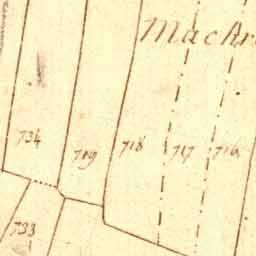 MacAr
734 719 718 717 716
733